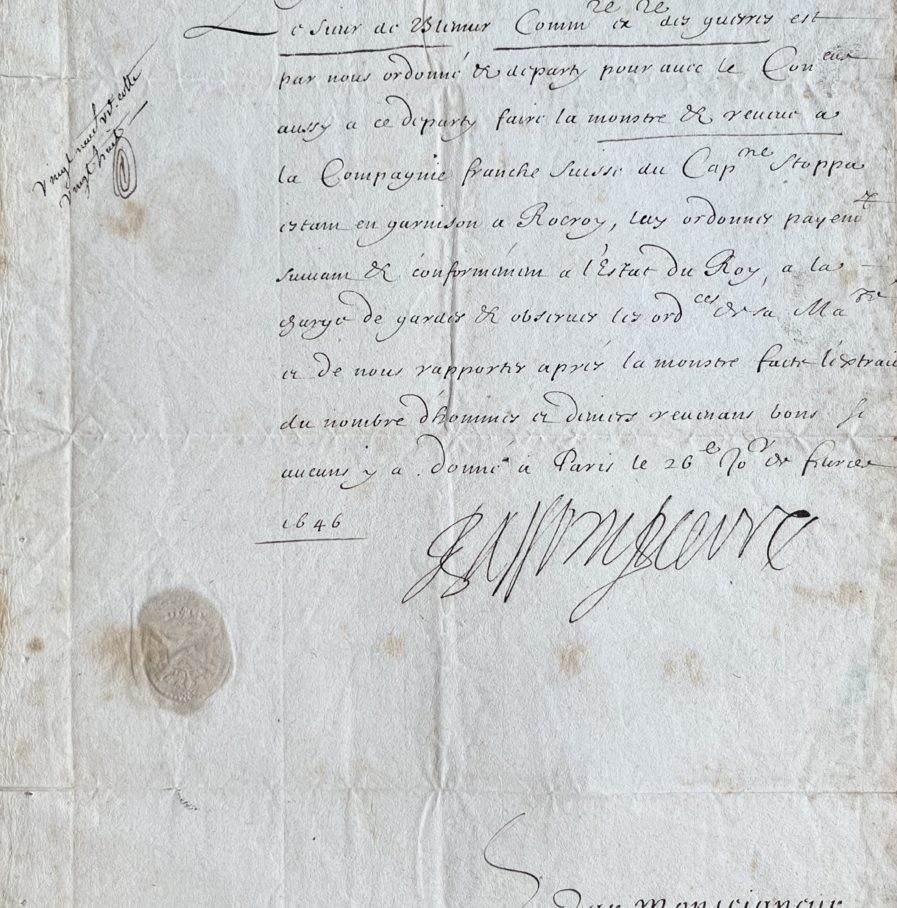 Le sieur de Blimur Comm^re ex^re des guerres est
par nous ordonné & departy pour avec le Con^eur
aussy a ce departy faire la monstre & reveue a
la Compagnie franche suisse du Cap^ne Stoppa
estant en garnison a Rocroy, luy ordonner payem^t
suivant & conformément a l'Estat du Roy, a la
charge de garder & observer les ord^ces de sa Ma^té
et de nous rapporter après la monstre faite l'extrait
du nombre d'hommes et deniers revenans bons si
aucuns y a. donné à Paris le 26^e Jo^r de fevrier
1646
Bassompierre
Vingt neuf
Vingt huit
Par Monseigneur